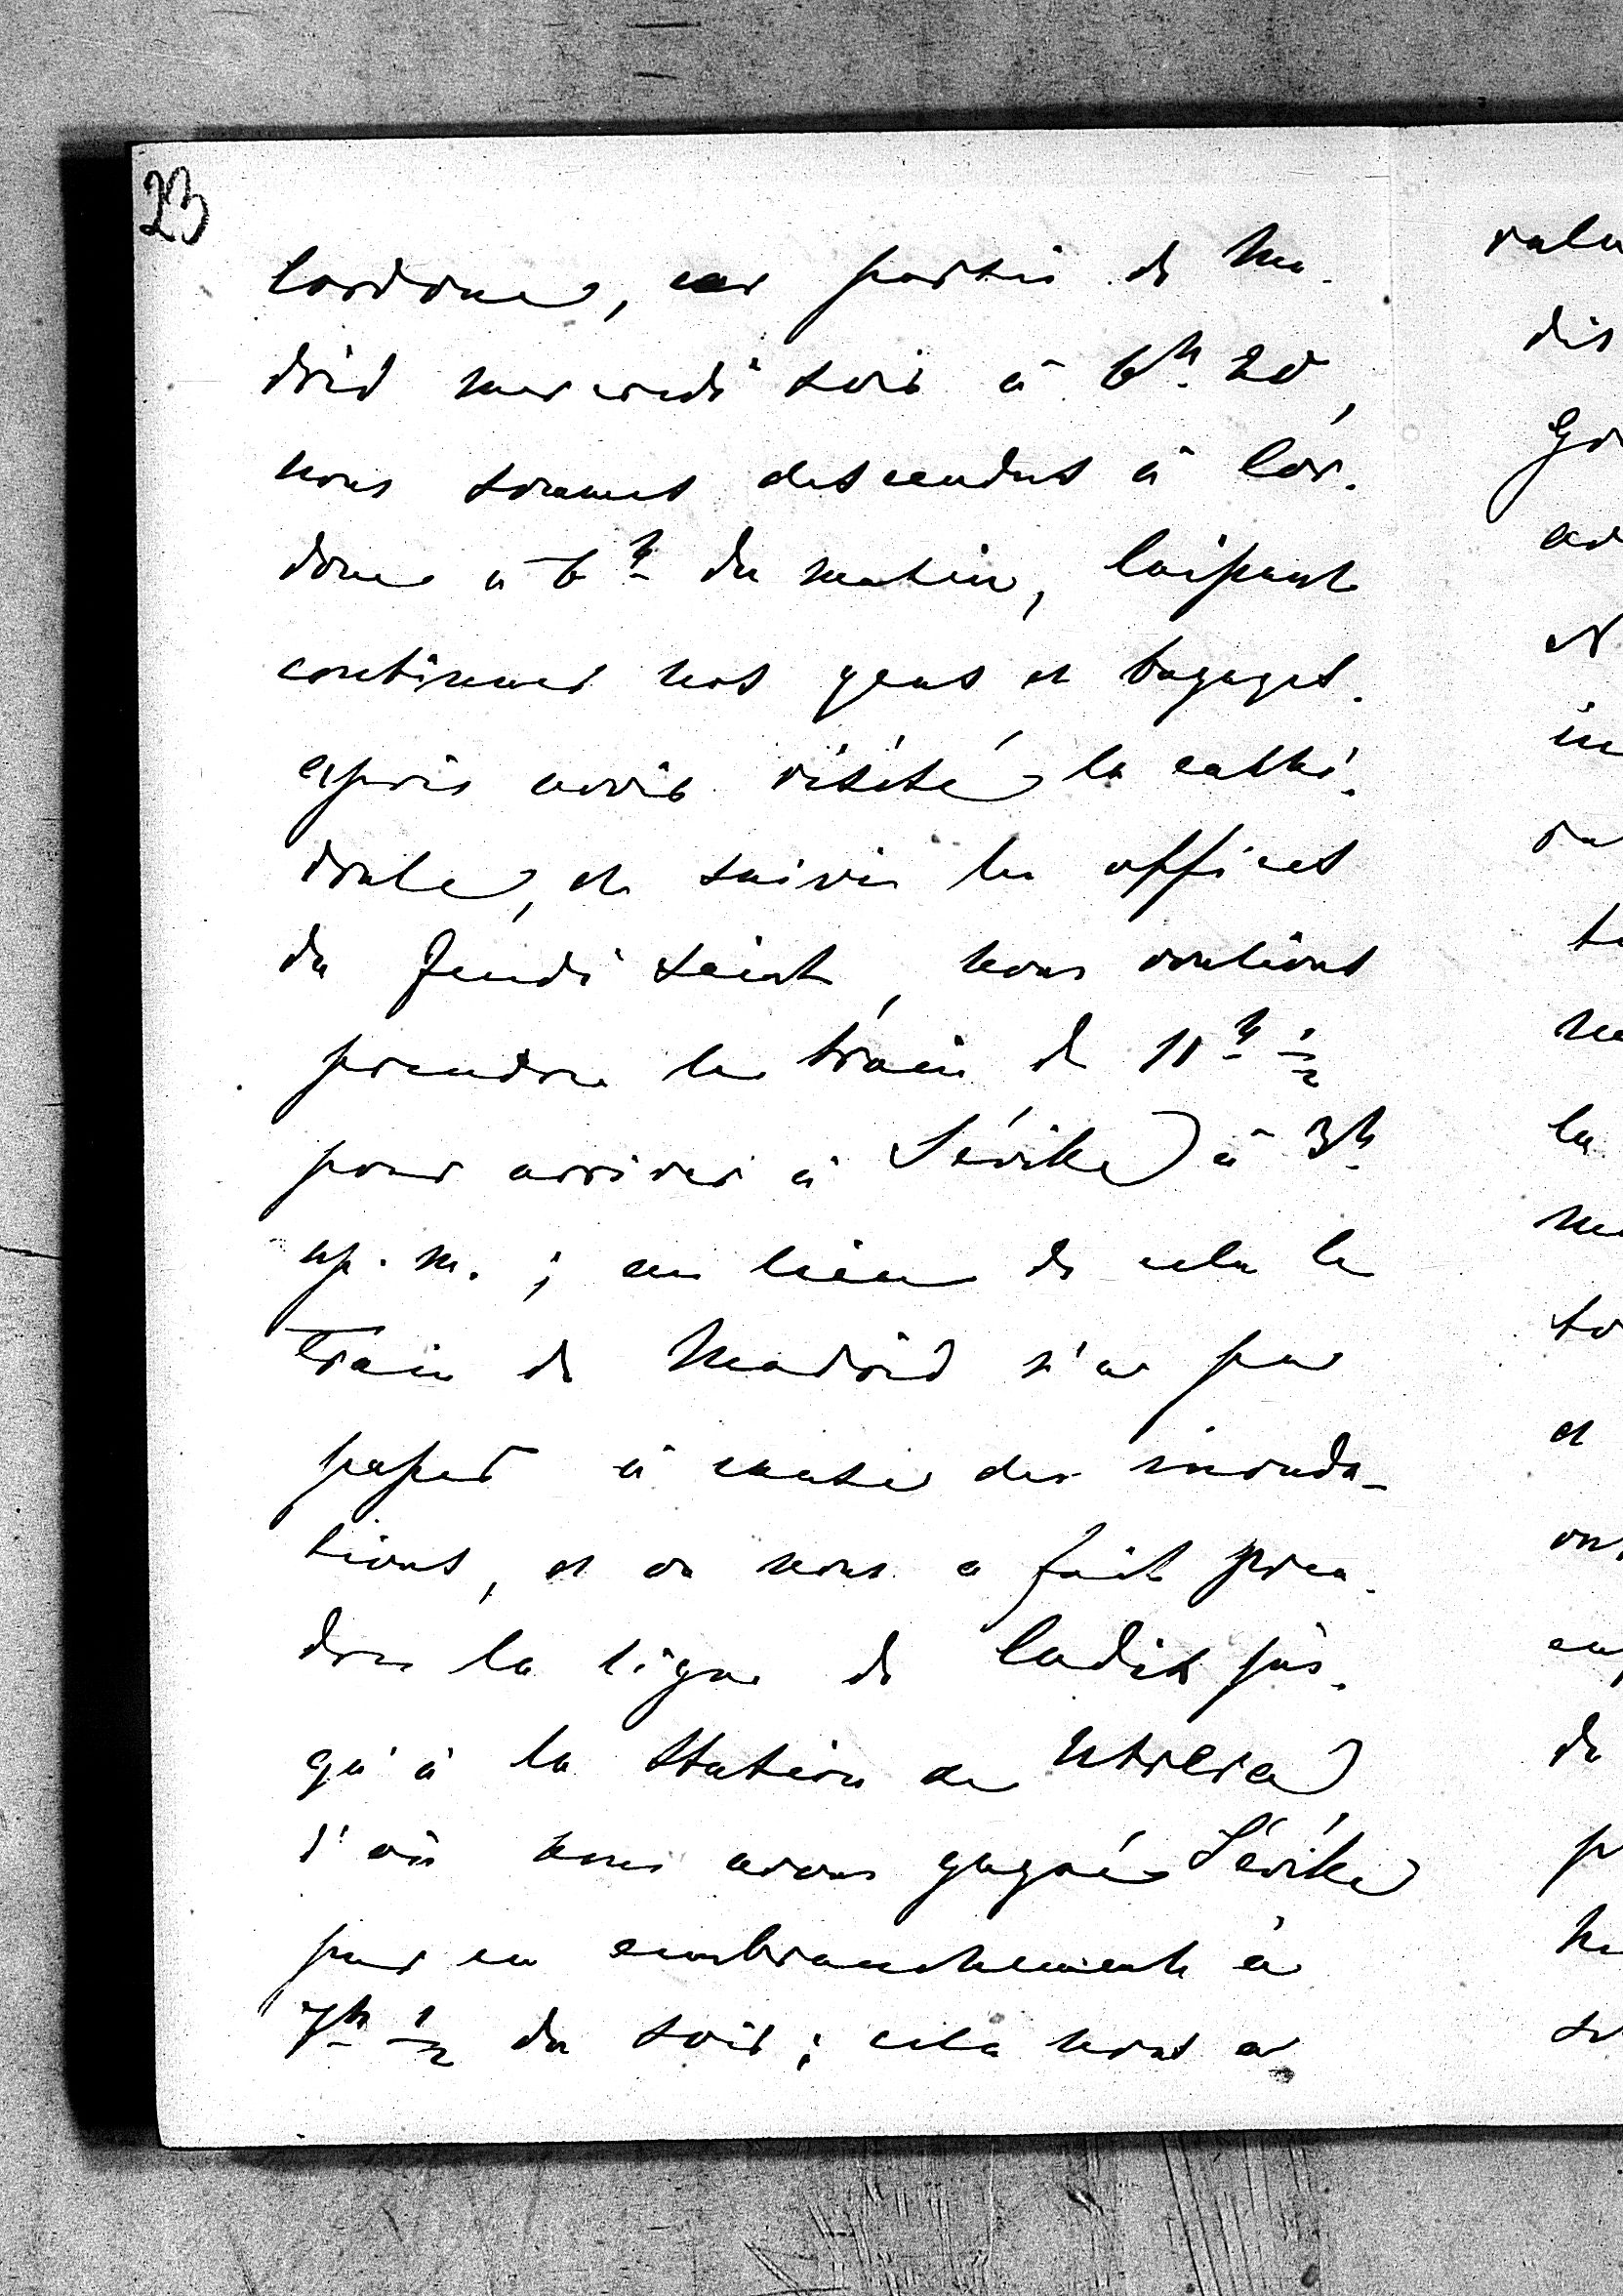 23
Cordoue, car partis de Ma-
drid mercredi soir à 6h 20,
nous sommes descendus à Cor-
doue à 6h du matin, laissant
continuer nos gens et bagages.
après avoir visité la cathé-
drale, et suivi les offices
du Jeudi saint, nous voulions
prendre le train de 11h 1/2
pour arriver à Séville à 3h
ap. m. ; au lieu de cela le
train de Madrid n'a pu
passer à cause des inonda-
tions, et on nous a fait pren-
dre la ligne de Cadix jus-
qu'à la station de Utrera
d'où nous avons gagné Séville
par un embranchement à
7h 1/2 du soir ; cela nous a